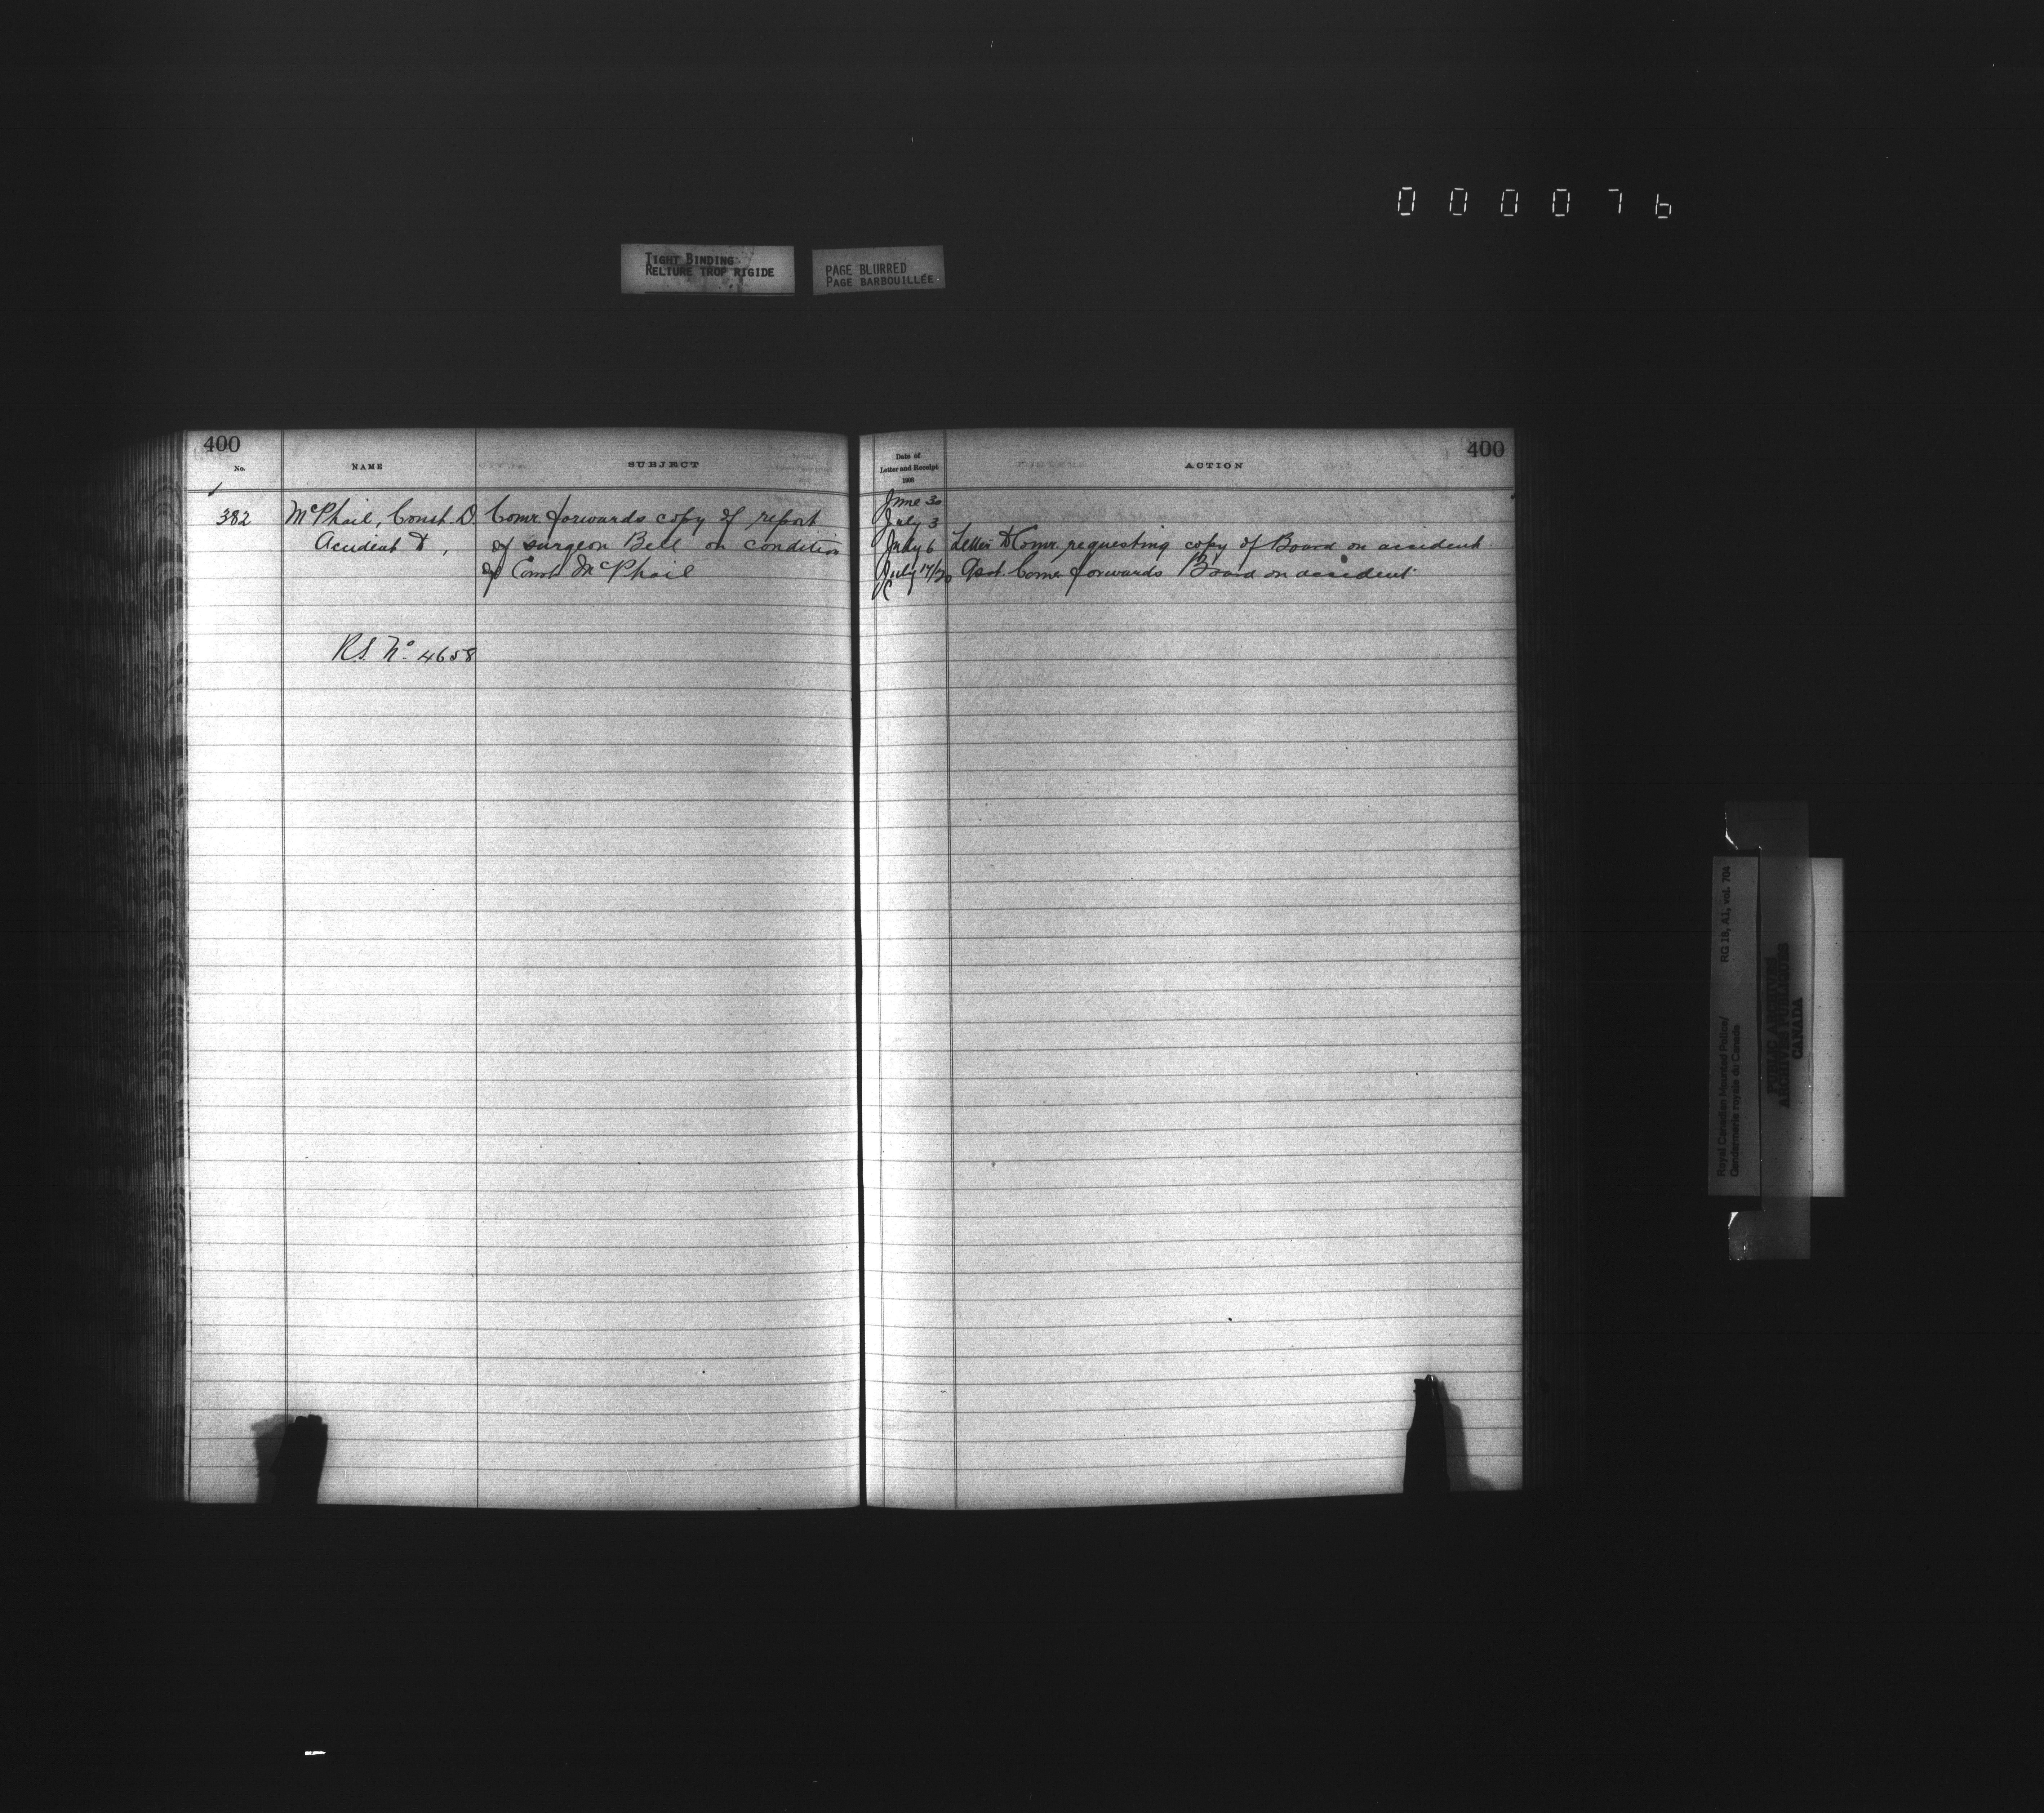 000076
TIGHT BINDING
RELIURE TROP RIGIDE
PAGE BLURRED
PAGE BARBOUILLÉE
400
No.
NAME
SUBJECT
382
McPhail, Const. D.
Accident to,
Comr. forwards copy of report
of surgeon Bell on condition
of Const McPhail
R.S. No. 4658
400
Date of
Letter and Receipt
ACTION
June 30
July 3
July 6 Letter to Comr. requesting copy of Board on accident
July 17/20 Asst. Comr forwards Board on accident
Royal Canadian Mounted Police/
Gendarmerie royale du Canada
RG 18, A1, vol. 704
PUBLIC ARCHIVES
ARCHIVES PUBLIQUES
CANADA